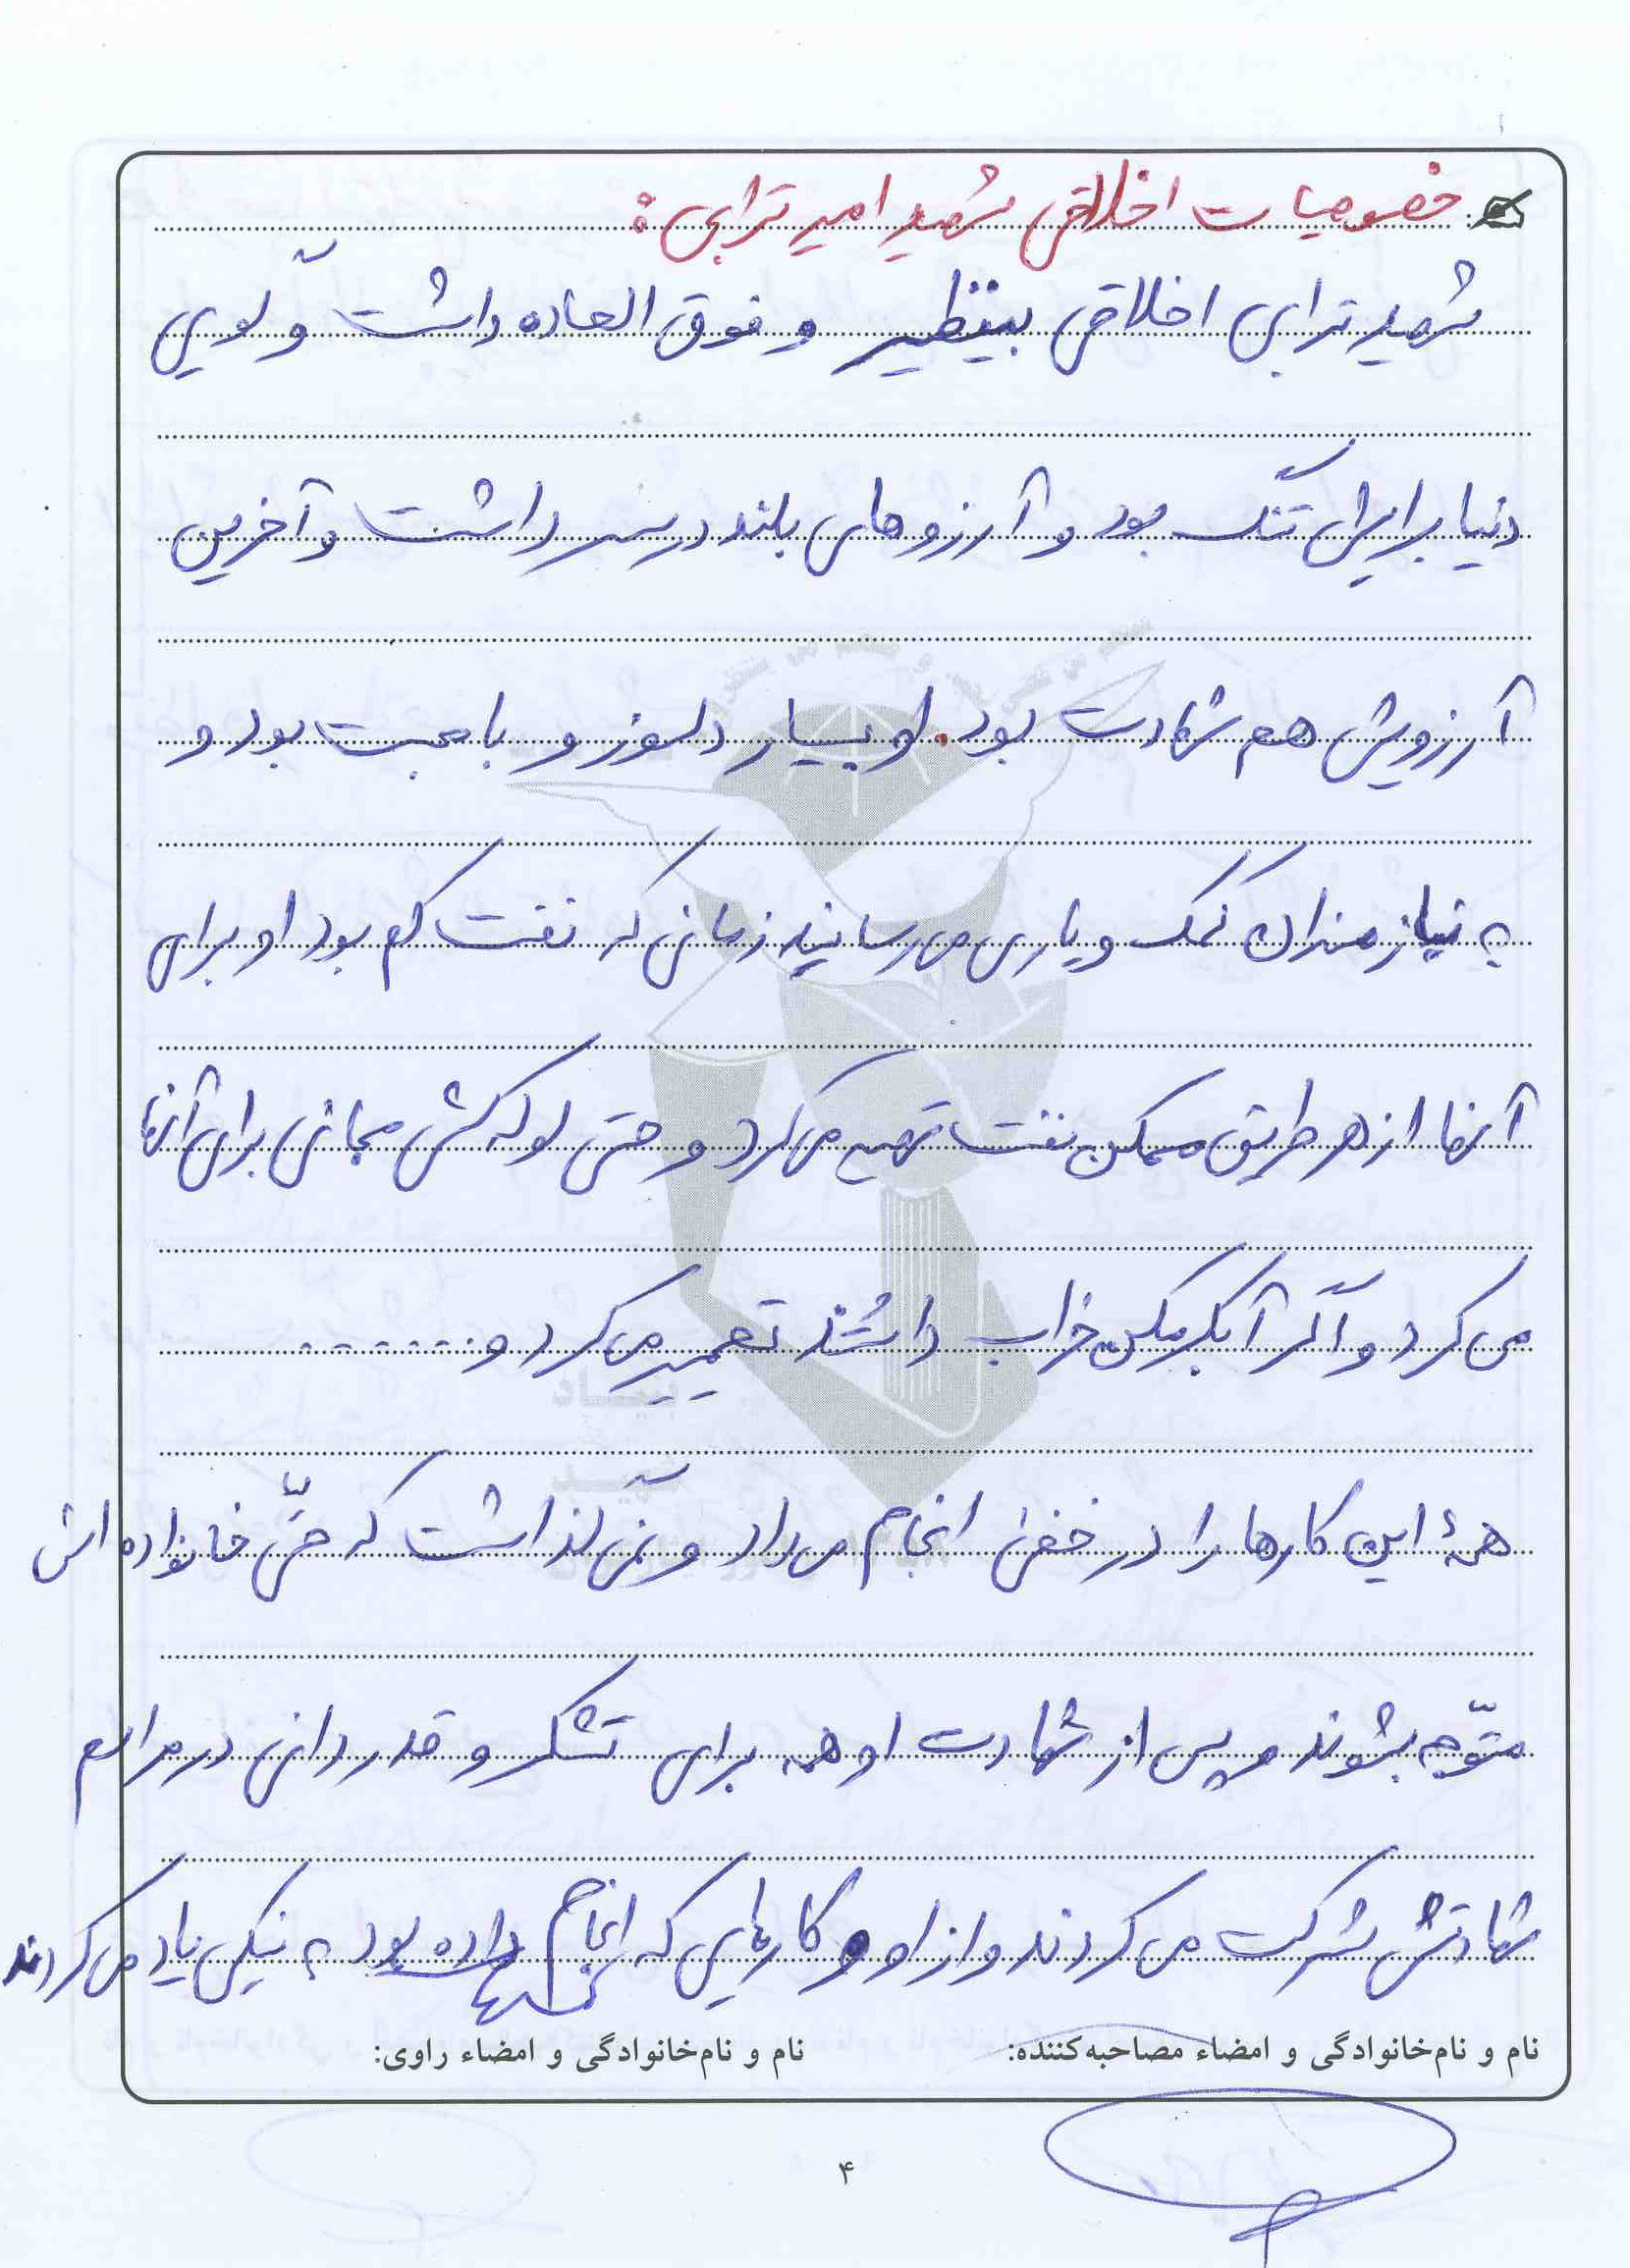 خصوصیات اخلاقی شهید امیر ترابی:
شهید ترابی اخلاقی بینظیر و فوق العاده داشت و گویی
دنیا برایش تنگ بود و آرزوهای بلند در سر داشت و آخرین
آرزویش هم شهادت بود. او بسیار دلسوز و با محبت بود و
به نیازمندان کمک و یاری می رسانید زمانی که نفت کم بود او برای
آنها از هر طریق ممکن نفت تهیه می کرد و حتی لوله کشی مجانی برای آنها
می کرد و اگر آبگرمکن خراب داشتند تعمیر می کرد و.......
همۀ این کارها را در خفی انجام می داد و نمی گذاشت که حتّی خانواده اش
متوّجه بشوند و پس از شهادت او همه برای تشکر و قدردانی در مراسم
شهادتش شرکت می کردند و از او و کارهایی که انجام داده بود به نیکی یاد می کردند
نام و نام‌خانوادگی و امضاء مصاحبه‌کننده:
نام و نام‌خانوادگی و امضاء راوی:
۴